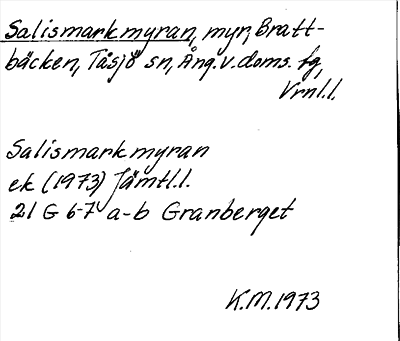 Salismarkmyran, myr, Bratt-
bäcken, Tåsjö sn, Ång. v. doms. fg,
Vrnl.l.
Salismarkmyran
ek (1973) Jämtl.l.
21 G 6-7 a-b Granberget
K.M. 1973